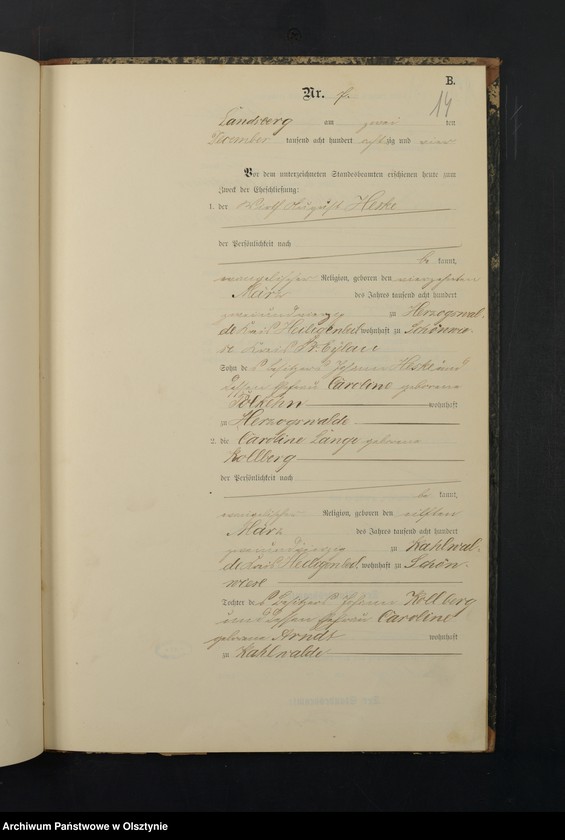 B.
Nr. 7.
14
Landsberg am zwei ten
Dezember tausend acht hundert achtzig und vier
Vor dem unterzeichneten Standesbeamten erschienen heute zum
Zweck der Eheschließung:
1. der August Heske
der Persönlichkeit nach
be kannt,
evangelischer Religion, geboren den vierzehnten
März des Jahres tausend acht hundert
zweiundvierzig zu Herzogswal-
de Kreis Heiligenbeil wohnhaft zu Schönwie-
se Kreis Pr. Eylau
Sohn des Besitzers Heske und
dessen Ehefrau Caroline geborene
wohnhaft
zu Herzogswalde
2. die Caroline Lange geborene
Kollberg
der Persönlichkeit nach
be kannt,
evangelischer Religion, geboren den elften
März des Jahres tausend acht hundert
zu Kahlwal-
de Kreis Heiligenbeil wohnhaft zu Schön-
wiese
Tochter des Besitzers Kollberg
und dessen Ehefrau Caroline
geborene Arndt wohnhaft
zu Kahlwalde
Archiwum Państwowe w Olsztynie